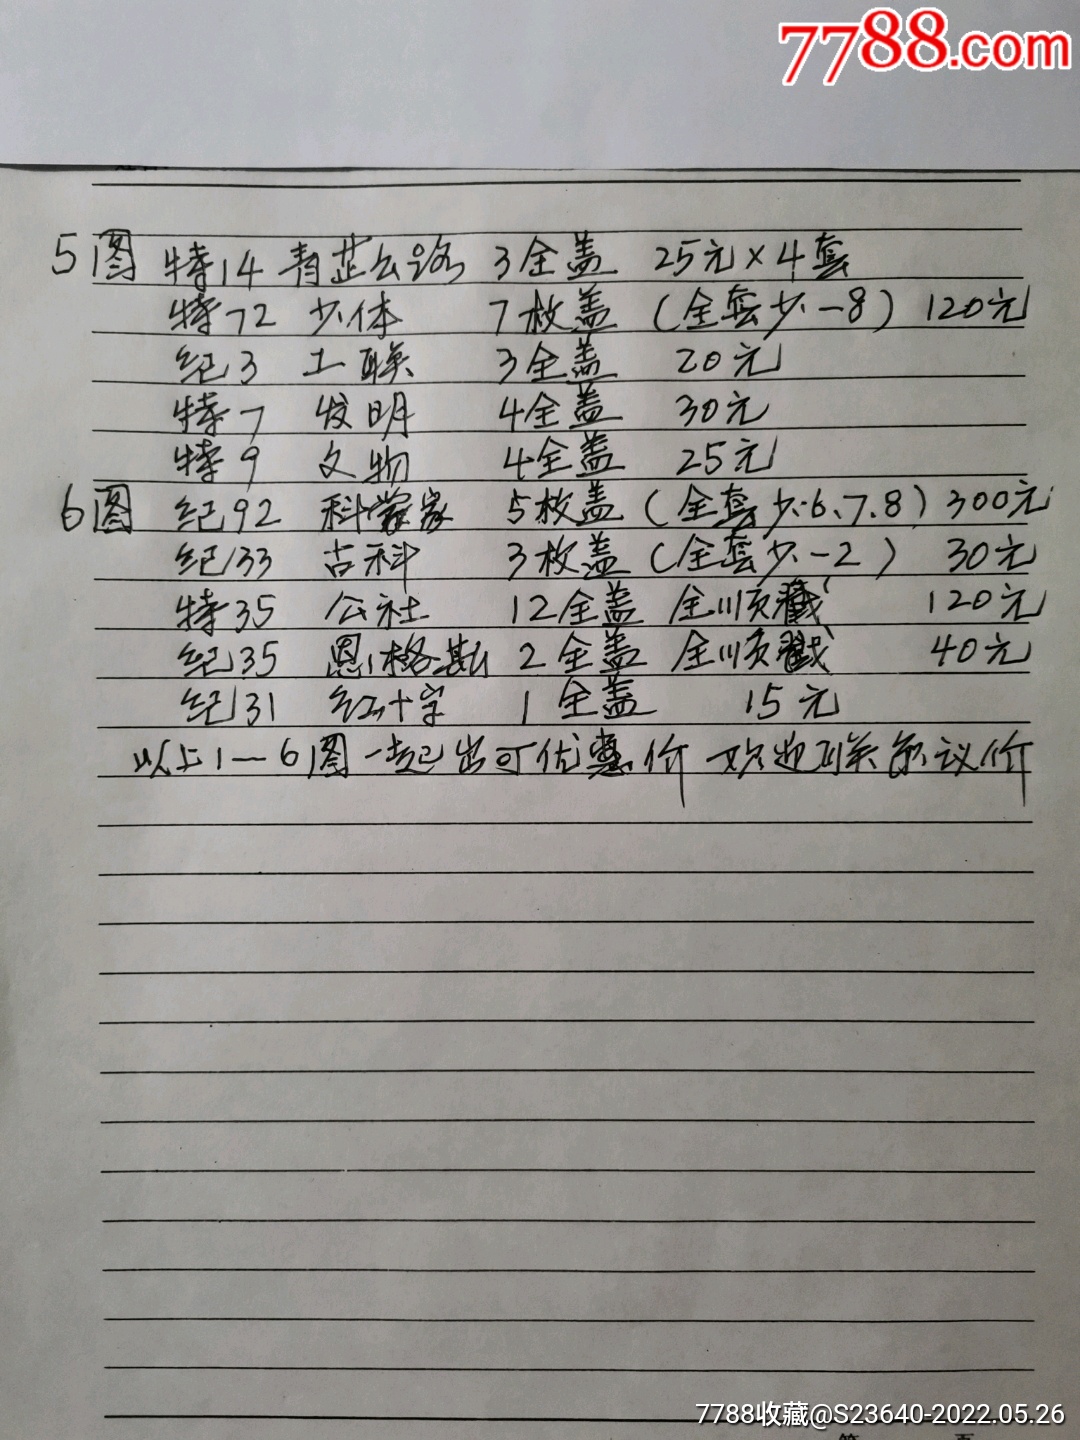 7788.com
5图 特14 青芷公路 3全盖 25元×4套
特72 少体 7枚盖 (全套少-8) 120元
纪3 工联 3全盖 20元
特7 发明 4全盖 30元
特9 文物 4全盖 25元
6图 纪92 科学家 5枚盖 (全套少.6.7.8) 300元
纪33 古科 3枚盖 (全套少-2) 30元
特35 公社 12全盖 全顺戳 120元
纪35 恩格斯 2全盖 全顺戳 40元
纪31 红十字 1全盖 15元
以上1—6图一起出可优惠价 欢迎联系议价
7788收藏@S23640-2022.05.26